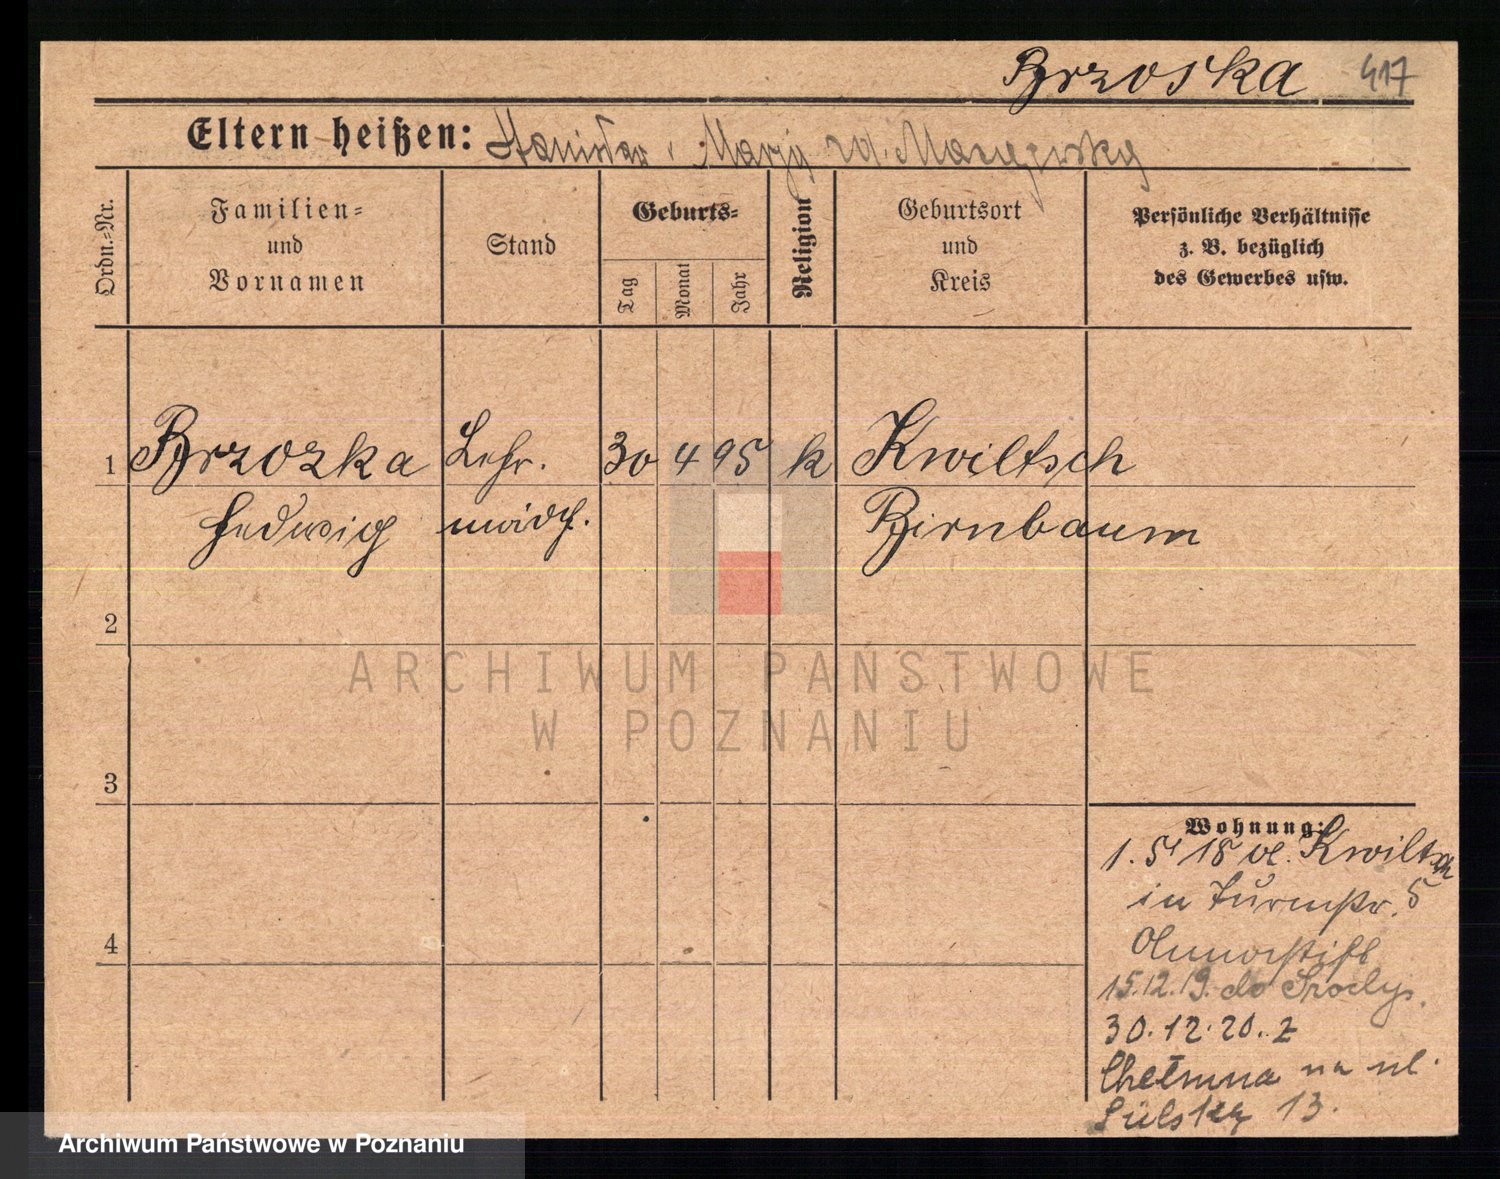 Brzoska 417
Eltern heißen: Stanisław i Marja
Ordn.-Nr.
Familien-
und
Vornamen
Stand
Geburts-
Tag
Monat
Jahr
Religion
Geburtsort
und
Kreis
Persönliche Verhältnisse
z. B. bezüglich
des Gewerbes usw.
1 Brzozka Lehr. 30 4 95 k Kwiltsch
Hedwig mädch. Birnbaum
2
3
4
Wohnung:
1. 5 18 vl. Kwiltsch
in Turmstr. 5
Annastift
15.12.19. do Środy
30.12.20. z
Chełmna na ul.
13.
ARCHIWUM PAŃSTWOWE
W POZNANIU
Archiwum Państwowe w Poznaniu